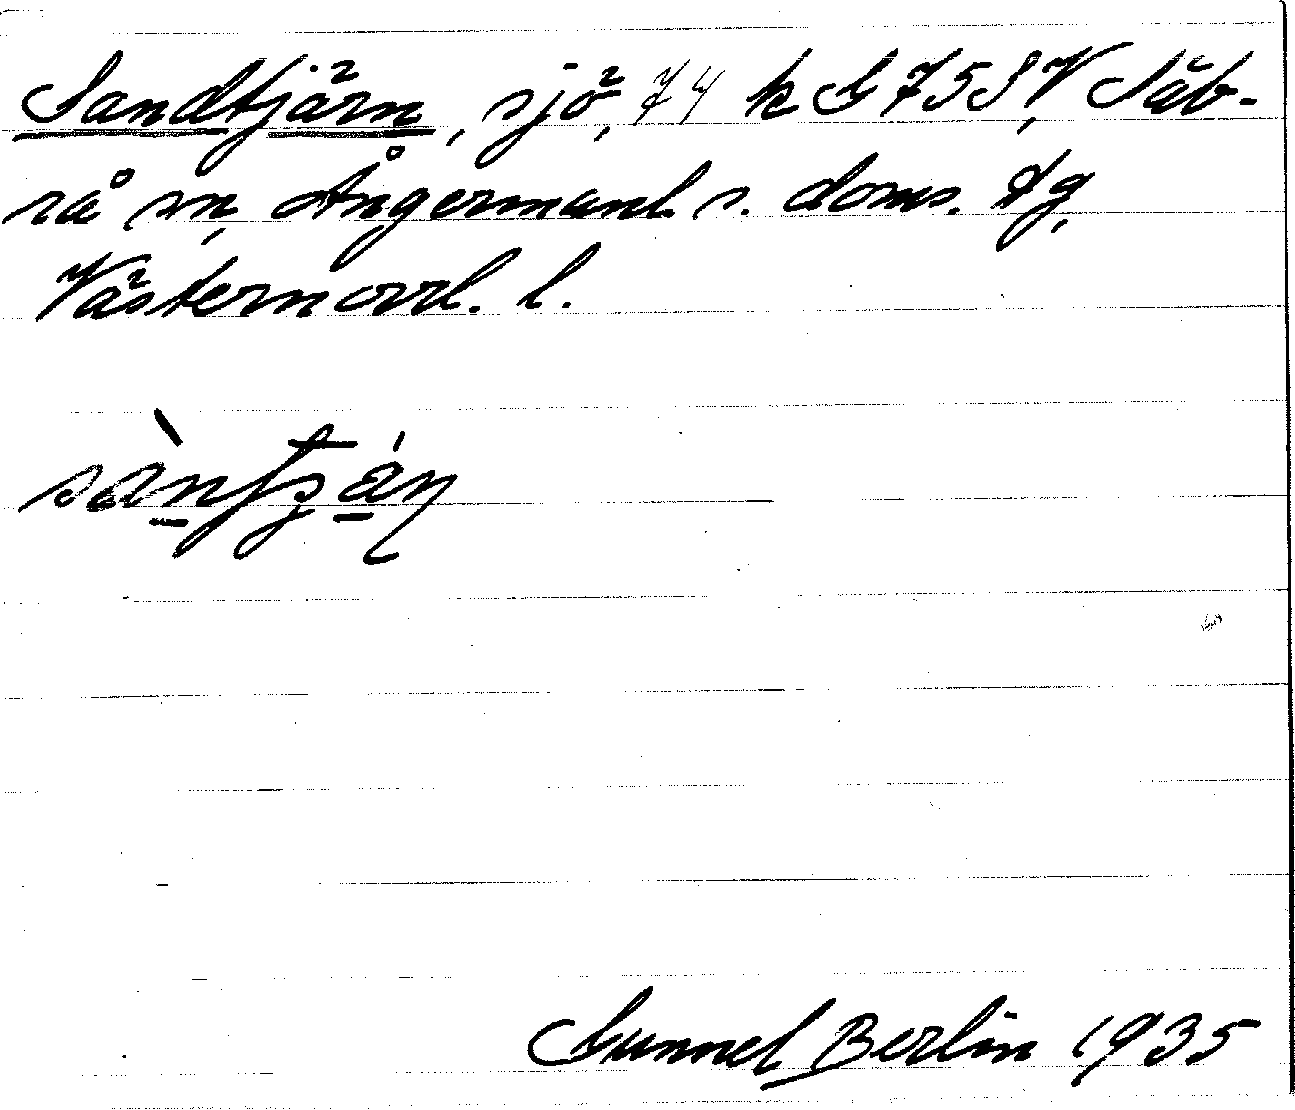 Sandtjärn, sjö, 74 k G 7531, V Säb-
rå sn, Ångermanl. s. doms. tg,
Västernorrl. l.
Gunnel Berlin 1935